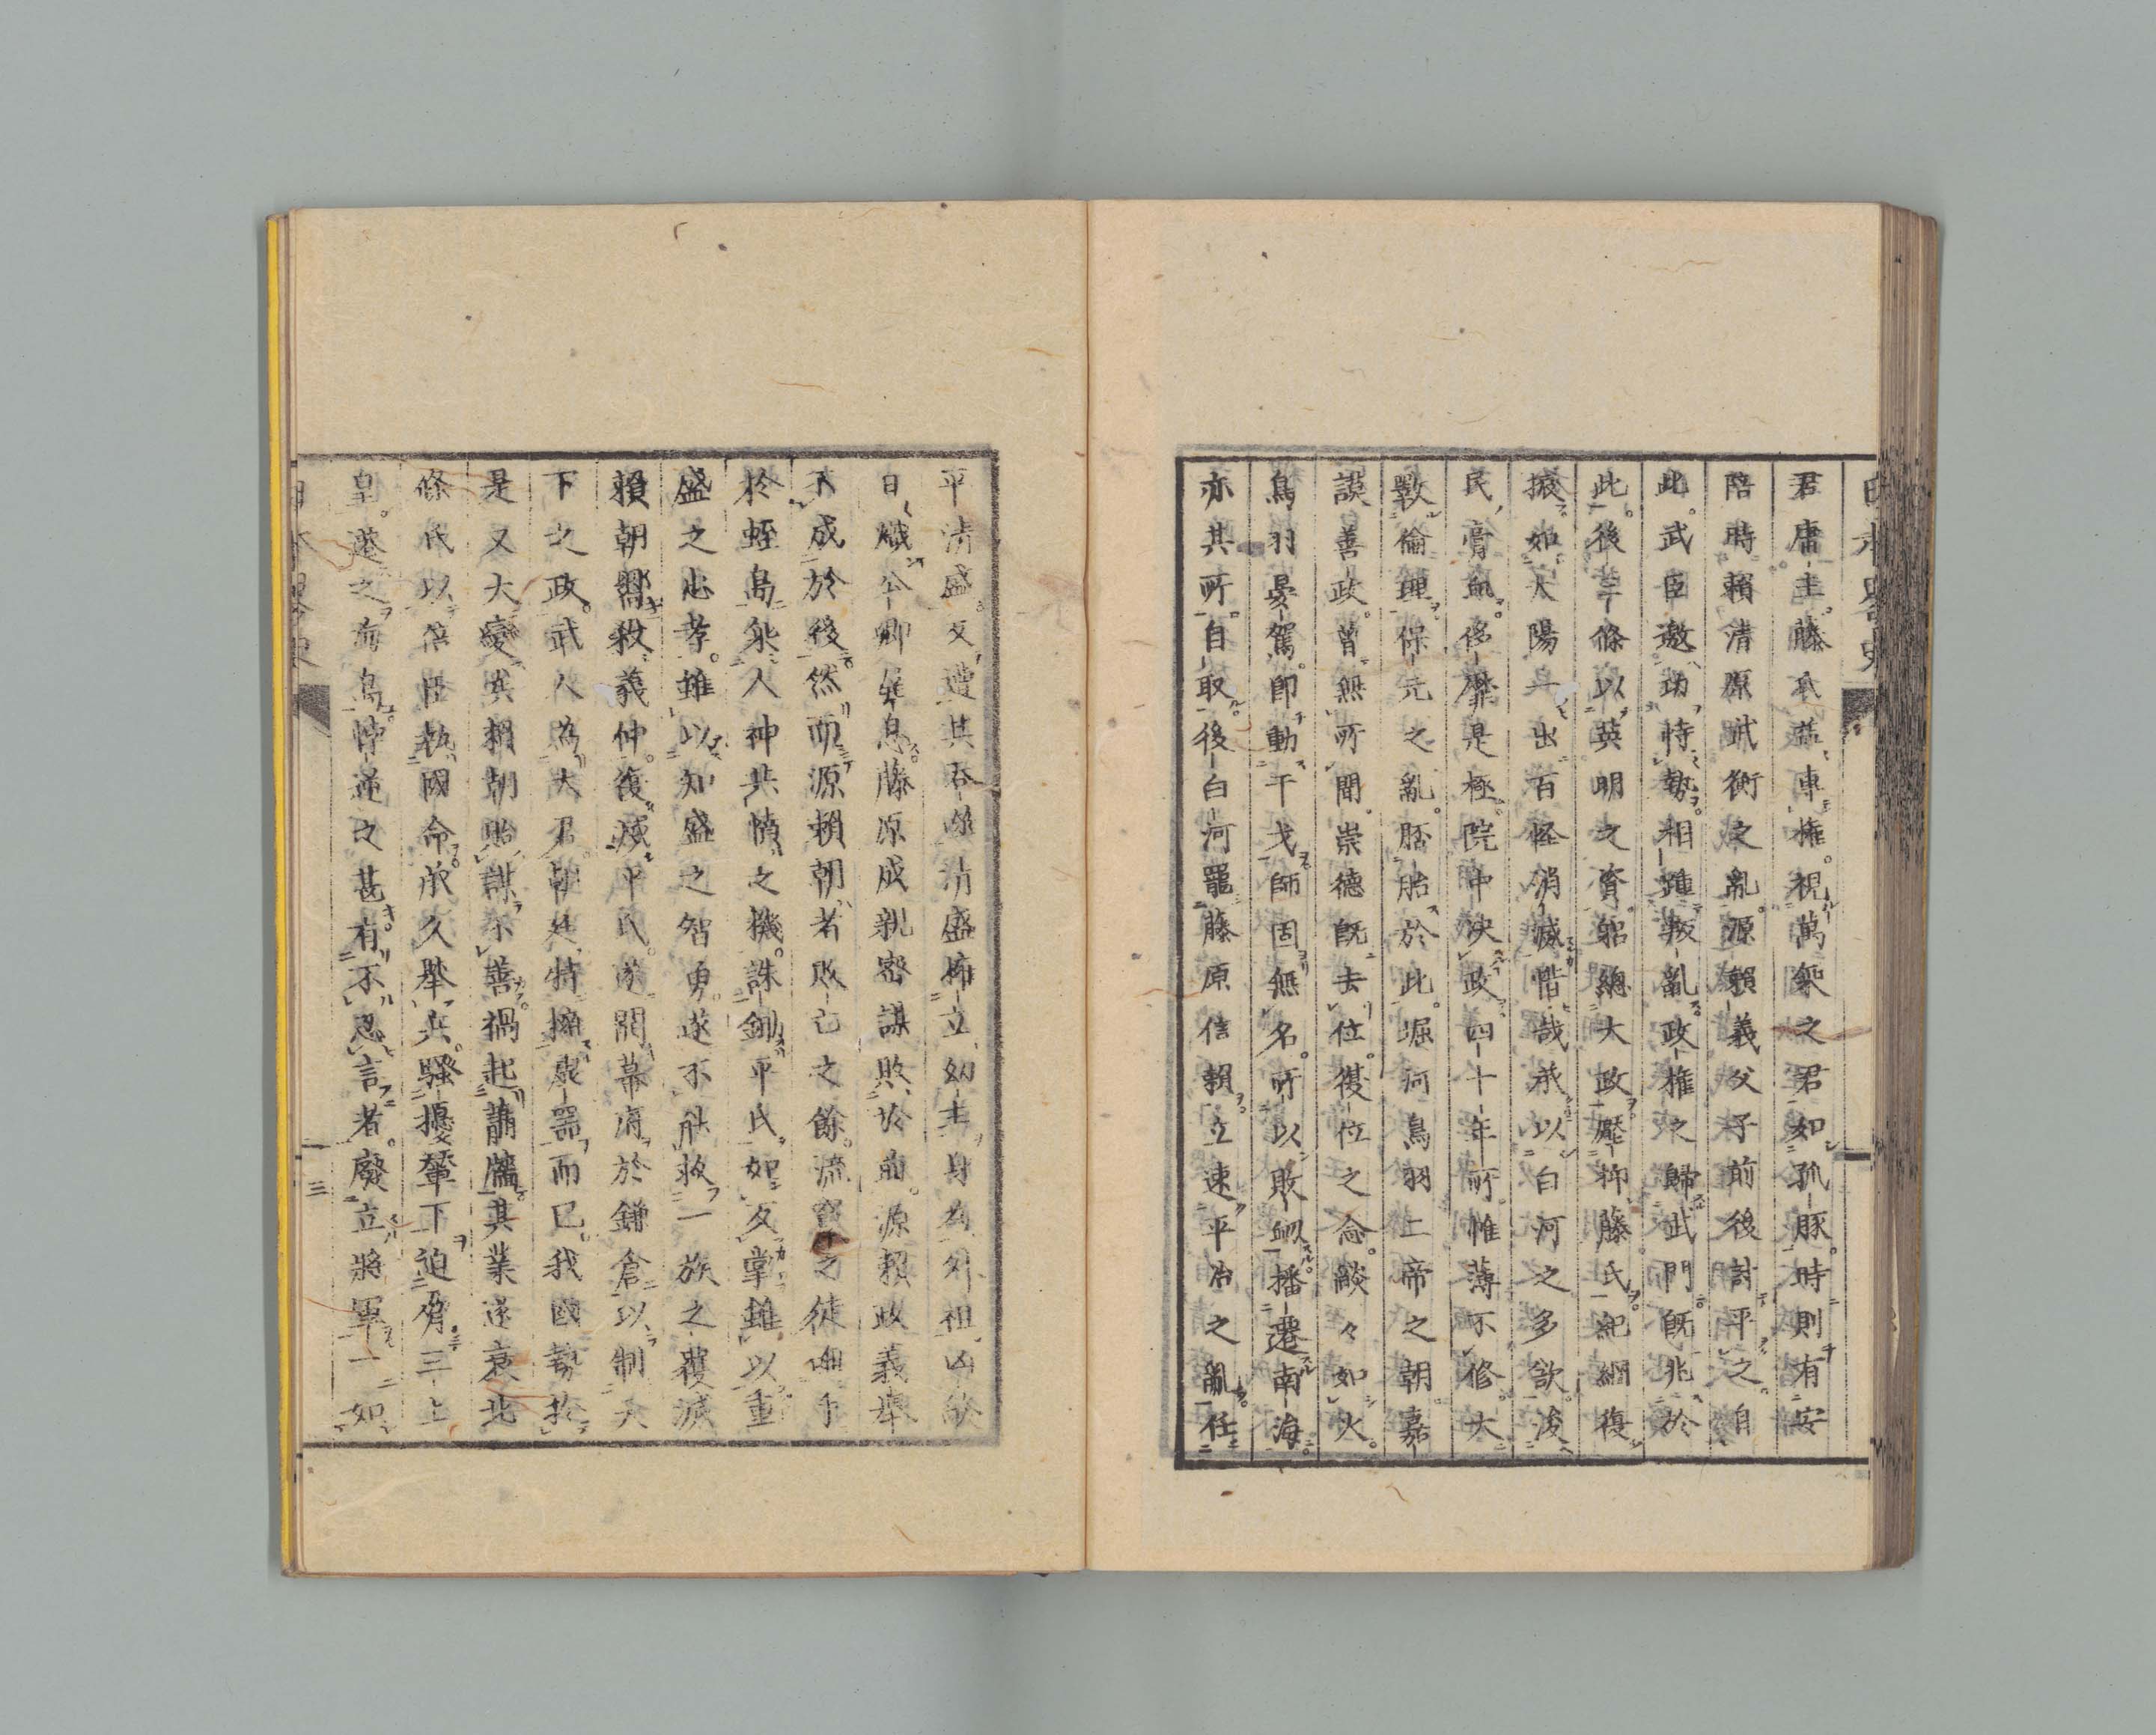 君庸主藤氏益專權視萬乘之君如孤豚時則有安
陪時賴清原武衡之亂源賴義父子前後討平之自
此武臣邀功恃勢相踵叛亂政權之歸武門既兆於
此後三條以英明之資躬總大政壓抑藤氏紀綱復
振如大陽一出百怪消滅惜哉承以白河之多欲浚
民膏血侈靡是極院中決政四十年所惟薄不修大
斁倫理保元之亂胚胎於此堀河鳥羽二帝之朝嘉
謨善政曽無所聞崇德既去位復位之念燄々如火
鳥羽晏駕即動干戈師固無名所以敗衂播遷南海
亦其所自取後白河寵藤原信賴立速平治之亂任
平清盛反遭其吞噬清盛擁立幼主身為外祖凶燄
日熾公卿屏息藤原成親密謀敗於前源賴政義舉
不成於後然而源賴朝者敗亡之餘流竄之徒崛乎
於蛭島乘人神共憤之機誅鋤平氏如反掌雖以重
盛之忠孝雖以知盛之智勇遂不能救一族之覆滅
賴朝嚮殺義仲復滅平氏遂開幕府於鎌倉以制天
下之政武人為大君朝廷特擁虛器而已我國勢於
是又大變矣賴朝貽謀不善禍起蕭牆其業遂衰北
條氏以陪臣執國命承久舉兵騷擾輦下迫脅三上
皇遷之海島悖逆之甚有不忍言者廢立將軍一如
三